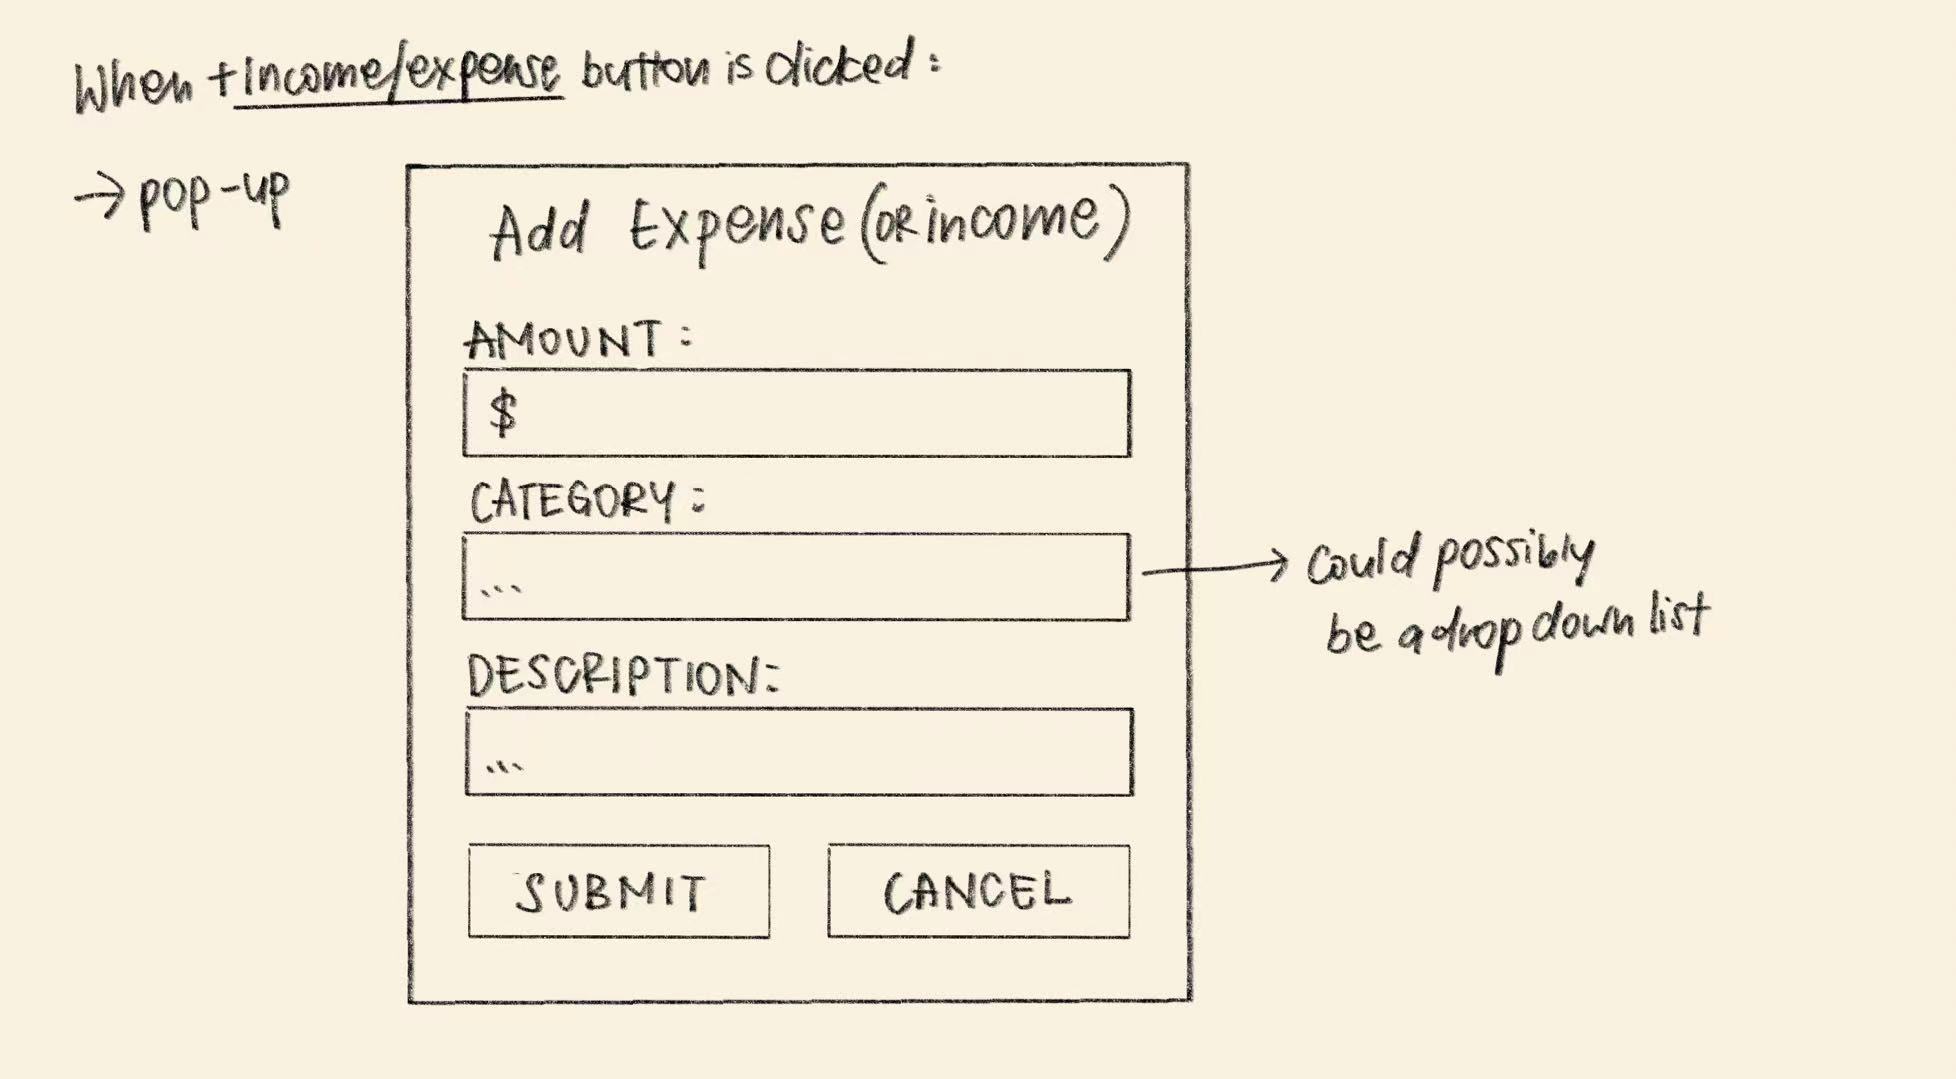 When +Income/expense button is clicked:
→ pop-up
Add Expense (OR income)
AMOUNT:
$
CATEGORY:
...
could possibly
be a drop down list
DESCRIPTION:
...
SUBMIT
CANCEL